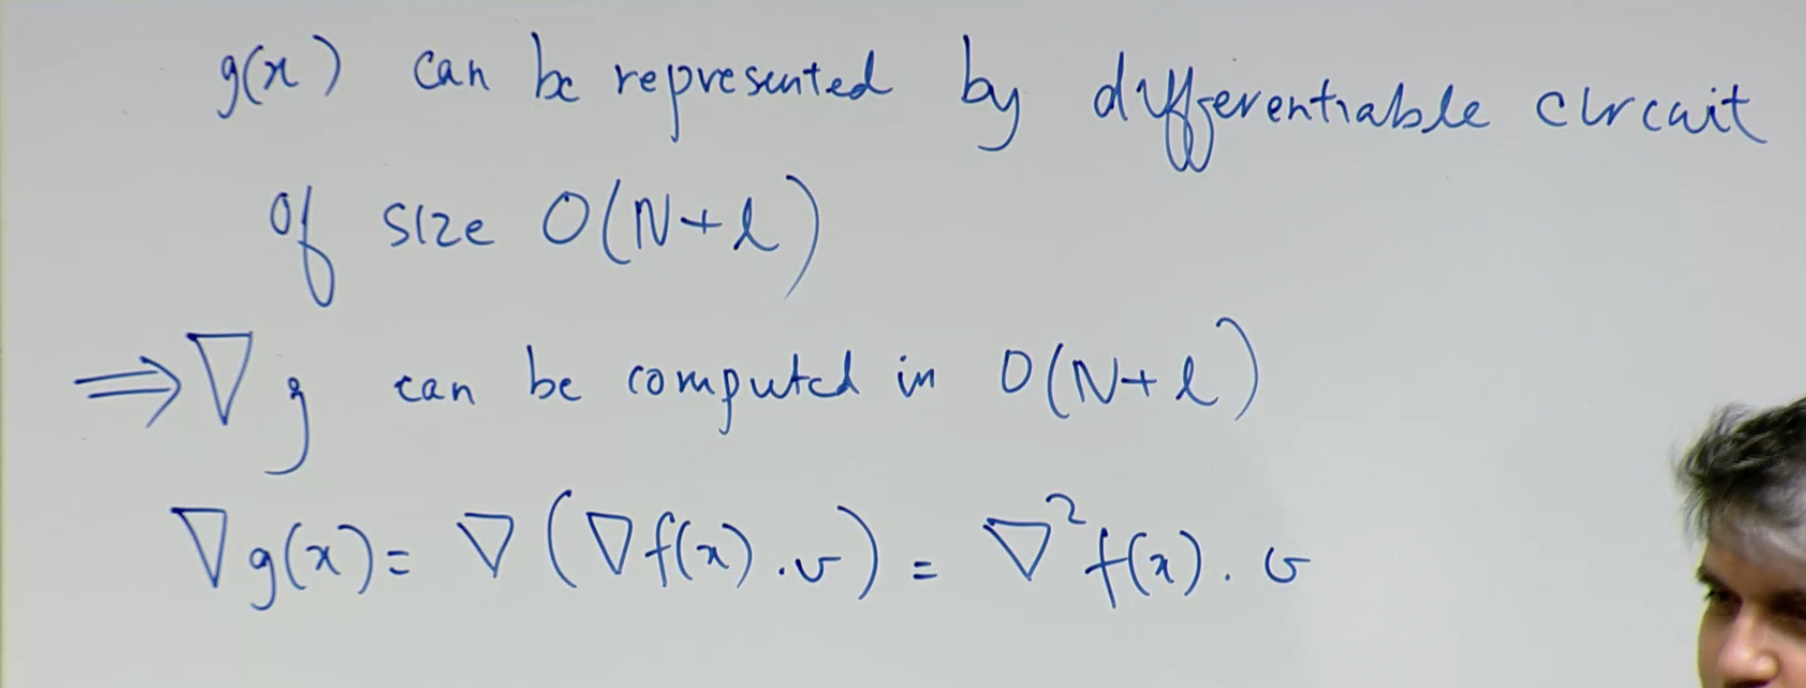 g(x) can be represented by differentiable circuit
of size O(N+l)
⇒ ∇g can be computed in O(N+l)
∇g(x) = ∇(∇f(x).v) = ∇²f(x).v